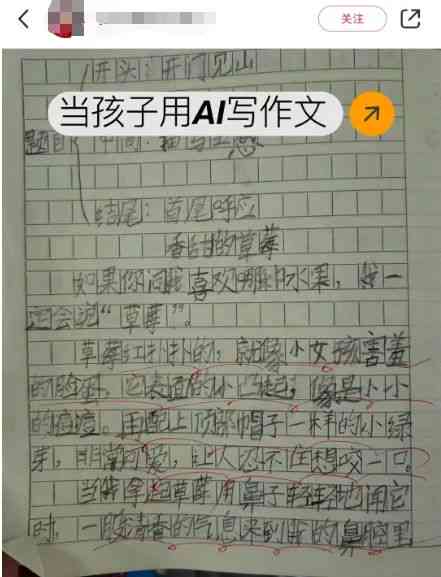 关注
开头：开门见山
当孩子用AI写作文
题目 中间：描写
结尾：首尾呼应
香甜的草莓
如果你问我喜欢哪种水果，我一
定会说“草莓”。
草莓红扑扑的，就像小女孩害羞
的脸，它表面的小凸起，像是小小
的痘痘。再配上顶部帽子一样的小绿
芽，非常可爱，让人忍不住想咬一口。
当我拿起草莓用鼻子轻轻地闻它
时，一股清香的气息来到我的鼻腔里